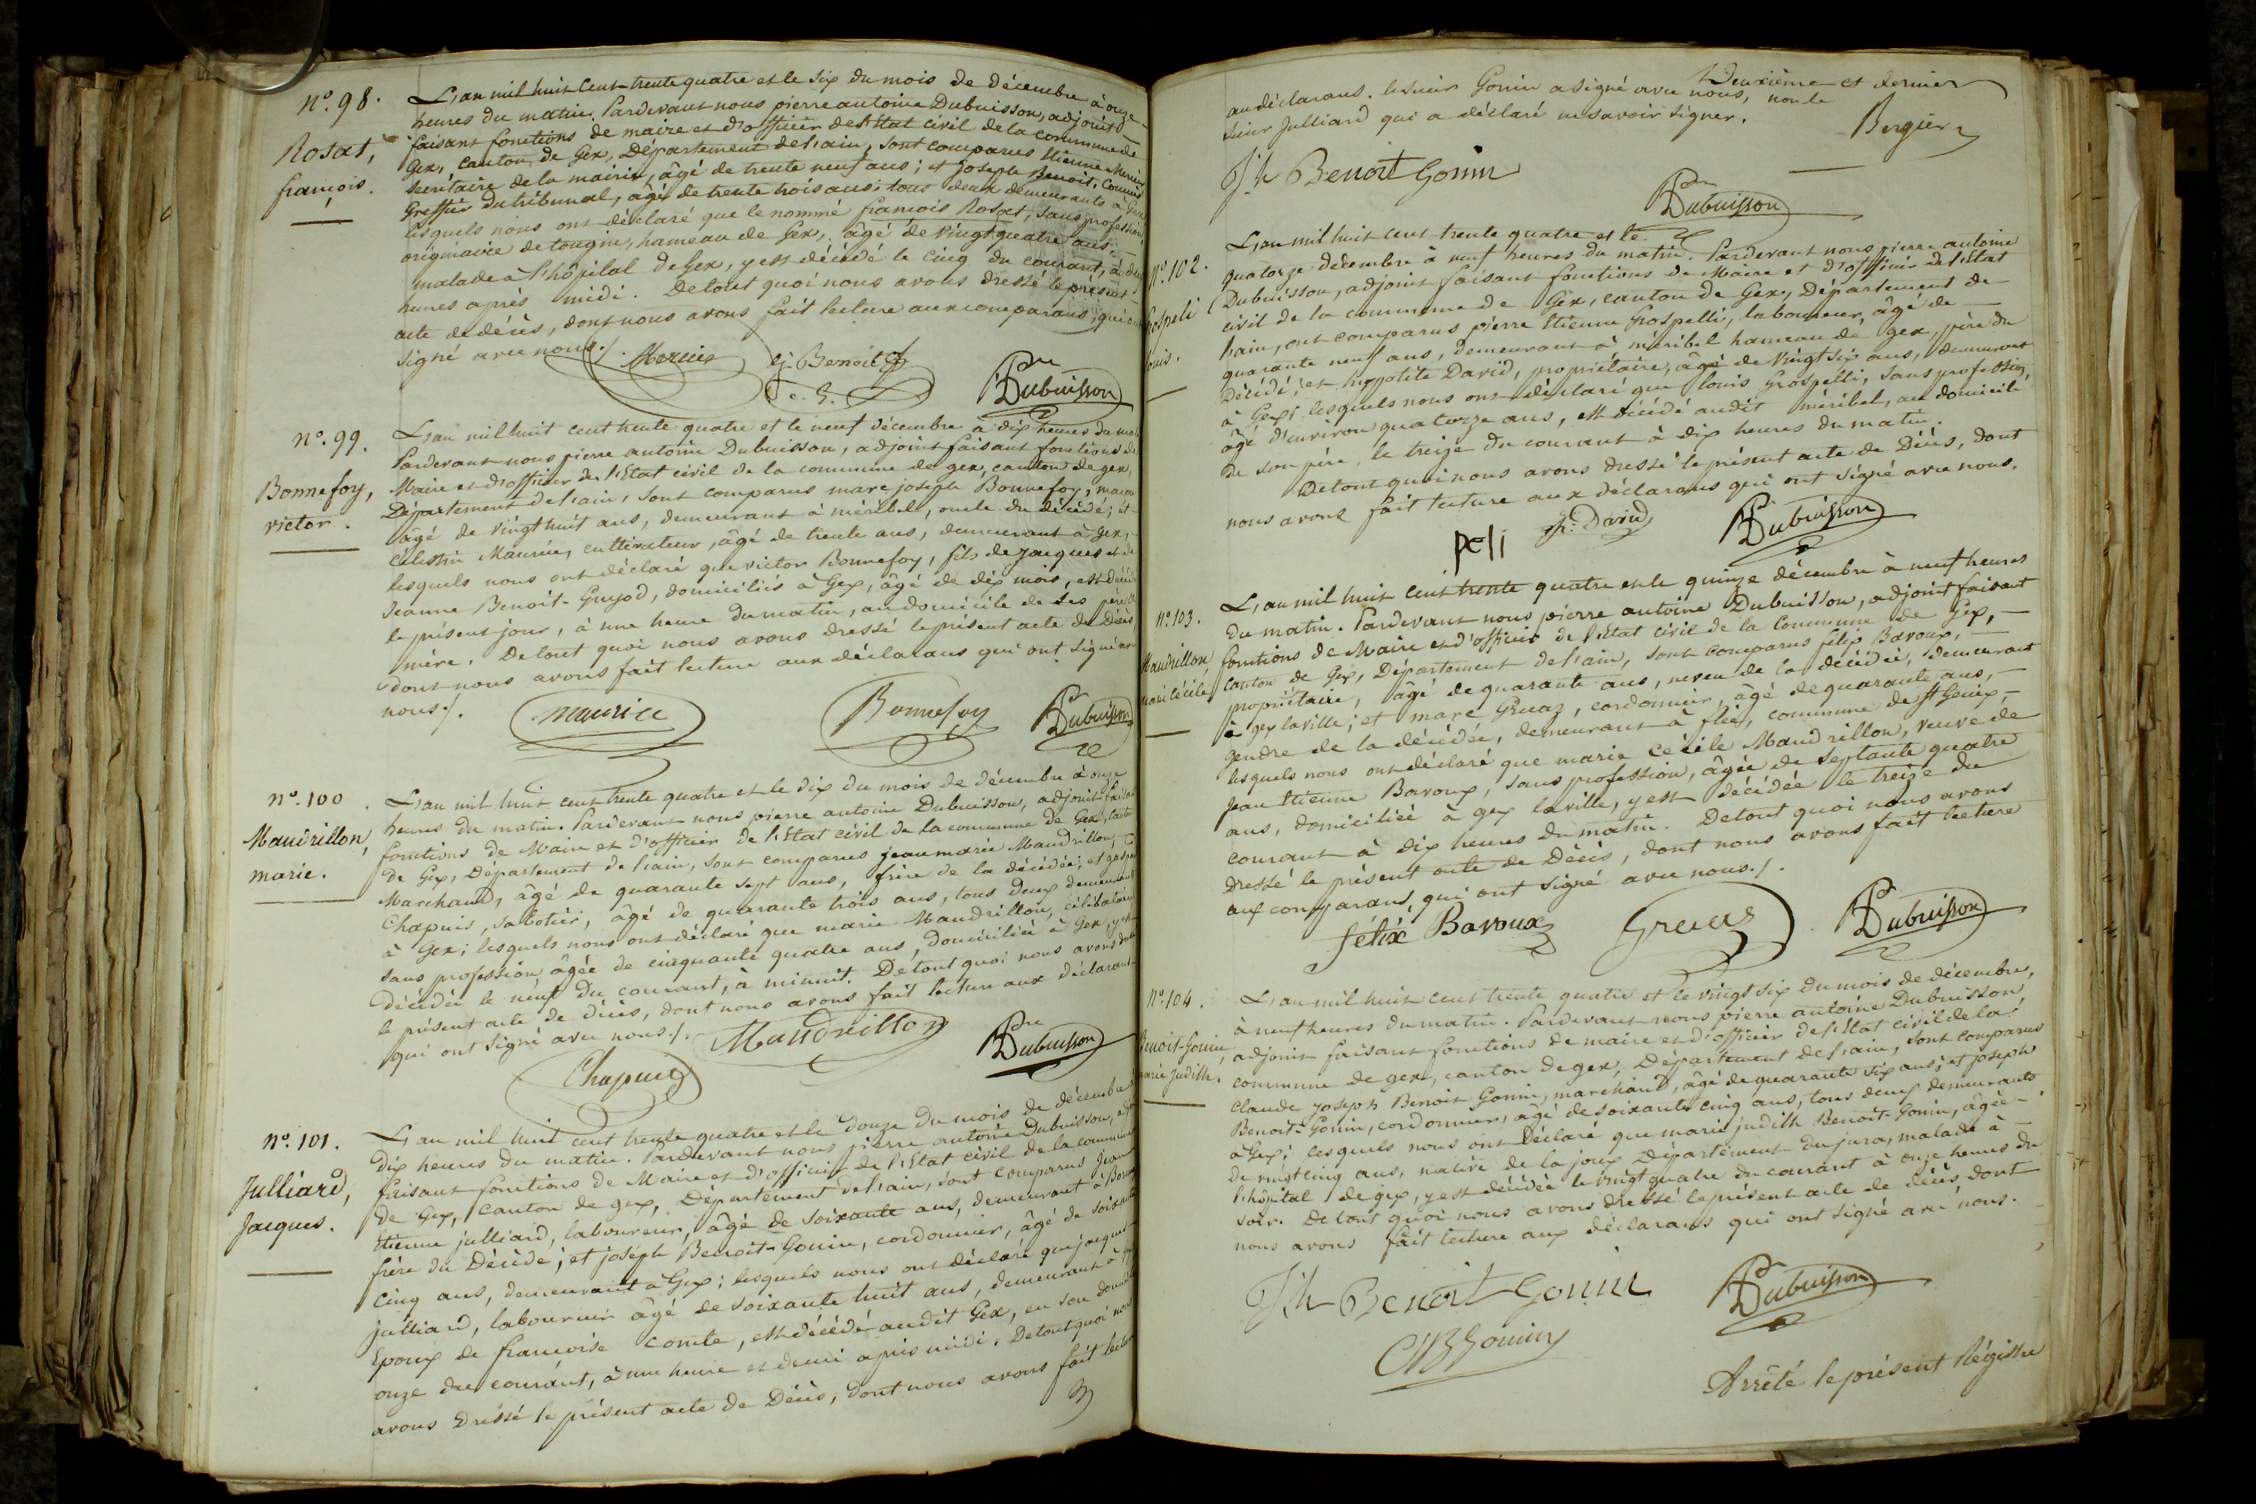 N°. 98.
Rosat,
françois.
L'an mil huit cent trente quatre et le six du mois de décembre à onze
heures du matin. Pardevant nous pierre antoine Dubuisson, adjoint
faisant fonctions de maire et d'officier de l'Etat civil de la commune de
Gex, canton de Gex, Département de l'ain, sont comparus Etienne Mercier
secrétaire de la mairie, âgé de trente neuf ans; et joseph Benoit, commis
Greffier du tribunal, âgé de trente trois ans; tous deux demeurants à Gex
lesquels nous ont déclaré que le nommé françois Rosat, sans profession,
originaire de tougin, hameau de Gex, âgé de vingt quatre ans,
malade à l'hôpital de Gex, y est décédé le cinq du courant, à
heures après midi. De tout quoi nous avons dressé le présent
acte de décès, dont nous avons fait lecture aux comparans, qui ont
signé avec nous./.
Mercier
j. Benoit
c. G.
Dubuisson
N°. 99.
Bonnefoy,
victor.
L'an mil huit cent trente quatre et le neuf décembre à dix heures du matin
Pardevant nous pierre antoine Dubuisson, adjoint faisant fonctions de
Maire et d'officier de l'Etat civil de la commune de gex, canton de gex,
Département de l'ain, sont comparus marc joseph Bonnefoy, maçon
âgé de vingt huit ans, demeurant à méribel, oncle du décédé; et
Célestin Maurice, cultivateur, âgé de trente ans, demeurant à gex,
lesquels nous ont déclaré que victor Bonnefoy, fils de jacques et de
Jeanne Benoit-Guyod, domiciliés à Gex, âgé de dix mois, est décédé
le présent jour, à une heure du matin, au domicile de ses père et
mère. De tout quoi nous avons dressé le présent acte de Décès,
dont nous avons fait lecture aux déclarans qui ont signé avec
nous./.
Maurice
Bonnefoy
Dubuisson
N°. 100.
Maudrillon,
marie.
L'an mil huit cent trente quatre et le dix du mois de décembre à onze
heures du matin. Pardevant nous pierre antoine Dubuisson, adjoint faisant
fonctions de Maire et d'officier de l'Etat civil de la commune de Gex, canton
de Gex, Département de l'ain, sont comparus jean marie Maudrillon,
Marchand, âgé de quarante sept ans, frère de la décédée; et
Chapuis, sabotier, âgé de quarante trois ans, tous deux demeurants
à Gex; lesquels nous ont déclaré que marie Maudrillon, célibataire
sans profession, âgée de cinquante quatre ans, domiciliée à Gex, y est
Décédée le neuf du courant, à minuit. De tout quoi nous avons dressé
le présent acte de décès, dont nous avons fait lecture aux déclarans
qui ont signé avec nous./.
Maudrillon
Chapuis
Dubuisson
N°. 101.
Julliard,
Jacques.
L'an mil huit cent trente quatre et le Douze du mois de décembre à
dix heures du matin. Pardevant nous pierre antoine Dubuisson,
faisant fonctions de Maire et d'officier de l'Etat civil de la commune
de Gex, canton de gex, Département de l'ain, sont comparus Jean
Etienne julliard, laboureur, âgé de soixante ans, demeurant à
frère du Décédé; et joseph Benoit-Gonin, cordonnier, âgé de soixante
cinq ans, demeurant à Gex; lesquels nous ont déclaré que jacques
julliard, laboureur âgé de soixante huit ans, demeurant à Gex
Epoux de françoise Comte, est décédé audit Gex, en son domicile
onze du courant, à une heure et demi après midi. De tout quoi nous
avons Dressé le présent acte de Décès, dont nous avons fait lecture
Deuxième et dernier
Bergier
aux déclarans. le sieur Gonin a signé avec nous, non le
sieur Julliard qui a déclaré ne savoir signer.
Jh Benoit Gonin
Dubuisson
N°. 102.
Grospeli
louis.
L'an mil huit cent trente quatre et le
quatorze décembre à neuf heures du matin. Pardevant nous pierre antoine
Dubuisson, adjoint faisant fonctions de Maire et d'officier de l'Etat
civil de la commune de Gex, canton de Gex, Département de
l'ain, ont comparus pierre Etienne Grospelli, laboureur, âgé de
quarante neuf ans, demeurant à méribel hameau de gex, père du
Décédé; et hyppolite David, propriétaire, âgé de vingt six ans, demeurant
à Gex; lesquels nous ont déclaré que louis Grospelli, sans profession,
âgé d'environ quatorze ans, est décédé audit méribel, au domicile
de son père, le treize du courant à dix heures du matin.
De tout quoi nous avons dressé le présent acte de Décès, dont
nous avons fait lecture aux déclarans qui ont signé avec nous.
peli
h. David
Dubuisson
N°. 103.
Maudrillon,
marie cécile
L'an mil huit cent trente quatre et le quinze décembre à neuf heures
du matin. Pardevant nous pierre antoine Dubuisson, adjoint faisant
fonctions de Maire et d'officier de l'Etat civil de la Commune de Gex,
Canton de Gex, Département de l'ain, sont comparus félix Baroux,
propriétaire, âgé de quarante ans, neveu de la décédée, demeurant
à gex la ville; et marc Gruaz, cordonnier, âgé de quarante ans,
gendre de la décédée, demeurant à fliés, commune de St Genix,
lesquels nous ont déclaré que marie cécile Maudrillon, veuve de
Jean Etienne Baroux, sans profession, âgée de septante quatre
ans, domiciliée à gex la ville, y est décédée le treize du
courant à dix heures du matin. De tout quoi nous avons
dressé le présent acte de Décès, dont nous avons fait lecture
aux comparans, qui ont signé avec nous./.
félix Baroux
Gruaz
Dubuisson
N°. 104.
Benoit-Gonin,
marie Judith.
L'an mil huit cent trente quatre et le vingt six du mois de décembre,
à neuf heures du matin. Pardevant nous pierre antoine Dubuisson,
adjoint faisant fonctions de maire et d'officier de l'Etat civil de la
commune de gex, canton de gex, Département de l'ain, sont comparus
Claude joseph Benoit Gonin, marchand, âgé de quarante six ans; et joseph
Benoit-Gonin, cordonnier, âgé de soixante cinq ans, tous deux demeurants
à Gex; lesquels nous ont déclaré que marie judith Benoit-Gonin, âgée
de vingt cinq ans, native de la joux Département du jura, malade à
l'hôpital de gex, y est décédée le vingt quatre du courant à onze heures du
soir. De tout quoi nous avons dressé le présent acte de décès, dont
nous avons fait lecture aux déclarans qui ont signé avec nous.
Jh Benoit Gonin
Dubuisson
CJBGonin
Arrêté le présent Régistre